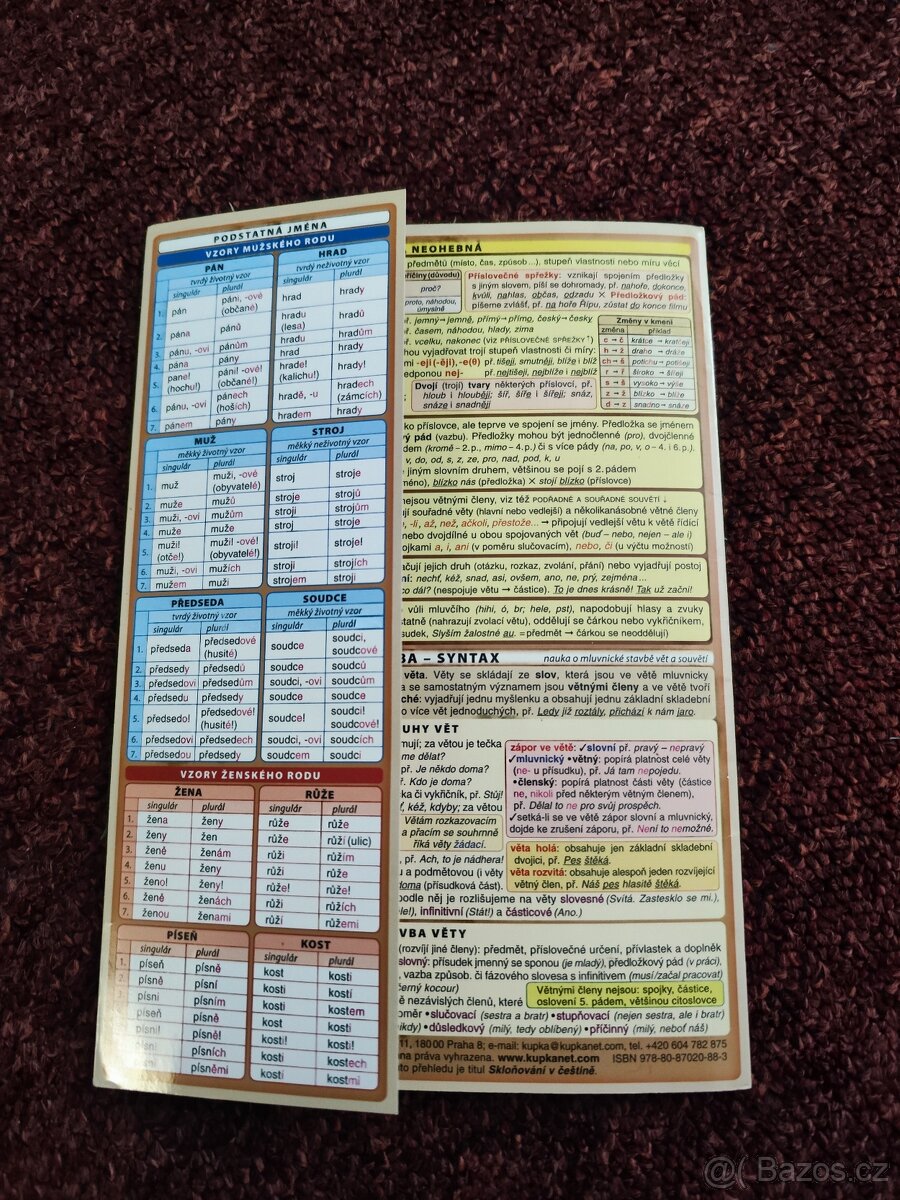 PODSTATNÁ JMÉNA
VZORY MUŽSKÉHO RODU
PÁN
tvrdý životný vzor
singulár plurál
1. pán páni, -ové (občané)
2. pána pánů
3. pánu, -ovi pánům
4. pána pány
5. pane! (hochu!) páni! -ové! (občané!)
6. pánu, -ovi pánech (hoších)
7. pánem pány
HRAD
tvrdý neživotný vzor
singulár plurál
hrad hrady
hradu (lesa) hradů
hradu hradům
hrad hrady
hrade! (kalichu!) hrady!
hradě, -u hradech (zámcích)
hradem hrady
MUŽ
měkký životný vzor
singulár plurál
1. muž muži, -ové (obyvatelé)
2. muže mužů
3. muži, -ovi mužům
4. muže muže
5. muži! (otče!) muži! -ové! (obyvatelé!)
6. muži, -ovi mužích
7. mužem muži
STROJ
měkký neživotný vzor
singulár plurál
stroj stroje
stroje strojů
stroji strojům
stroj stroje
stroji! stroje!
stroji strojích
strojem stroji
PŘEDSEDA
tvrdý životný vzor
singulár plurál
1. předseda předsedové (husité)
2. předsedy předsedů
3. předsedovi předsedům
4. předsedu předsedy
5. předsedo! předsedové! (husité!)
6. předsedovi předsedech
7. předsedou předsedy
SOUDCE
měkký životný vzor
singulár plurál
soudce soudci, soudcové
soudce soudců
soudci, -ovi soudcům
soudce soudce
soudce! soudci! soudcové!
soudci, -ovi soudcích
soudcem soudci
VZORY ŽENSKÉHO RODU
ŽENA
singulár plurál
1. žena ženy
2. ženy žen
3. ženě ženám
4. ženu ženy
5. ženo! ženy!
6. ženě ženách
7. ženou ženami
RŮŽE
singulár plurál
růže růže
růže růží (ulic)
růži růžím
růži růže
růže! růže!
růži růžích
růží růžemi
PÍSEŇ
singulár plurál
píseň písně
písně písní
písni písním
píseň písně
písni! písně!
písni písních
písní písněmi
KOST
singulár plurál
kost kosti
kosti kostí
kosti kostem
kost kosti
kosti! kosti!
kosti kostech
kostí kostmi
NEOHEBNÁ
předmětů (místo, čas, způsob…), stupeň vlastnosti nebo míru věcí
příčiny (důvodu)
proč?
proto, náhodou, úmyslně
Příslovečné spřežky: vznikají spojením předložky
s jiným slovem, píší se dohromady, př. nahoře, dokonce,
kvůli, nahlas, občas, odzadu × Předložkový pád:
píšeme zvlášť, př. na hoře Řípu, zůstat do konce filmu
př. jemný→jemně, přímý→přímo, český→česky
př. časem, náhodou, hlady, zima
př. vcelku, nakonec (viz PŘÍSLOVEČNÉ SPŘEŽKY ↑)
hou vyjadřovat trojí stupeň vlastnosti či míry:
mi -eji (-ěji), -e(0) př. tišeji, smutněji, blíže i blíž
edponou nej- př. nejtišeji, nejblíže i nejblíž
Dvojí (trojí) tvary některých příslovcí, př.
hloub i hlouběji; šíř, šíře i šířeji; snáz,
snáze i snadněji
Změny v kmeni
změna příklad
c → č krátce → kratčeji
h → ž draho → dráže
ch → š potichu → potišeji
r → ř široko → šířeji
s → š vysoko → výše
z → ž blízko → blíže
d → z snadno → snáze
ko příslovce, ale teprve ve spojení se jmény. Předložka se jménem
ý pád (vazbu). Předložky mohou být jednočlenné (pro), dvojčlenné
dem (kromě – 2.p., mimo – 4.p.) či s více pády (na, po, v, o – 4. i 6. p.).
v, do, od, s, z, ze, pro, nad, pod, k, u
jiným slovním druhem, většinou se pojí s 2. pádem
méno), blízko nás (předložka) × stojí blízko (příslovce)
nejsou větnými členy, viz též PODŘADNÉ A SOUŘADNÉ SOUVĚTÍ ↓
jí souřadné věty (hlavní nebo vedlejší) a několikanásobné větné členy
, -li, až, než, ačkoli, přestože… → připojují vedlejší větu k větě řídící
nebo dvojdílné u obou spojovaných vět (buď – nebo, nejen – ale i)
ojkami a, i, ani (v poměru slučovacím), nebo, či (u výčtu možností)
čují jejich druh (otázku, rozkaz, zvolání, přání) nebo vyjadřují postoj
ní: nechť, kéž, snad, asi, ovšem, ano, ne, prý, zejména…
o dál? (nespojuje větu → částice). To je dnes krásně! Tak už začni!
vůli mluvčího (hihi, ó, br; hele, pst), napodobují hlasy a zvuky
statně (nahrazují zvolací větu), oddělují se čárkou nebo vykřičníkem,
sudek, Slyším žalostné au. =předmět → čárkou se neoddělují)
BA – SYNTAX nauka o mluvnické stavbě vět a souvětí
věta. Věty se skládají ze slov, která jsou ve větě mluvnicky
a se samostatným významem jsou větnými členy a ve větě tvoří
ché: vyjadřují jednu myšlenku a obsahují jednu základní skladební
o více vět jednoduchých, př. Ledy již roztály, přichází k nám jaro.
UHY VĚT
mují; za větou je tečka
me dělat?
př. Je někdo doma?
př. Kdo je doma?
ka či vykřičník, př. Stůj!
ť, kéž, kdyby; za větou
Větám rozkazovacím
a přacím se souhrnně
říká věty žádací.
, př. Ach, to je nádhera!
u a podmětovou (i věty
doma (přísudková část).
podle něj je rozlišujeme na věty slovesné (Svítá. Zastesklo se mi.),
le!), infinitivní (Stát!) a částicové (Ano.)
zápor ve větě: ✓slovní př. pravý – nepravý
✓mluvnický •větný: popírá platnost celé věty
(ne- u přísudku), př. Já tam nepojedu.
•členský: popírá platnost části věty (částice
ne, nikoli před některým větným členem),
př. Dělal to ne pro svůj prospěch.
✓setká-li se ve větě zápor slovní a mluvnický,
dojde ke zrušení záporu, př. Není to nemožné.
věta holá: obsahuje jen základní skladební
dvojici, př. Pes štěká.
věta rozvitá: obsahuje alespoň jeden rozvíjející
větný člen, př. Náš pes hlasitě štěká.
VBA VĚTY
(rozvíjí jiné členy): předmět, příslovečné určení, přívlastek a doplněk
slovný: přísudek jmenný se sponou (je mladý), předložkový pád (v práci),
, vazba způsob. či fázového slovesa s infinitivem (musí/začal pracovat)
černý kocour)
ě nezávislých členů, které
Větnými členy nejsou: spojky, částice,
oslovení 5. pádem, většinou citoslovce
oměr •slučovací (sestra a bratr) •stupňovací (nejen sestra, ale i bratr)
ikdy) •důsledkový (milý, tedy oblíbený) •příčinný (milý, neboť náš)
11, 180 00 Praha 8; e-mail: kupka@kupkanet.com, tel. +420 604 782 875
na práva vyhrazena. www.kupkanet.com ISBN 978-80-87020-88-3
oto přehledu je titul Skloňování v češtině.
@( Bazos.cz